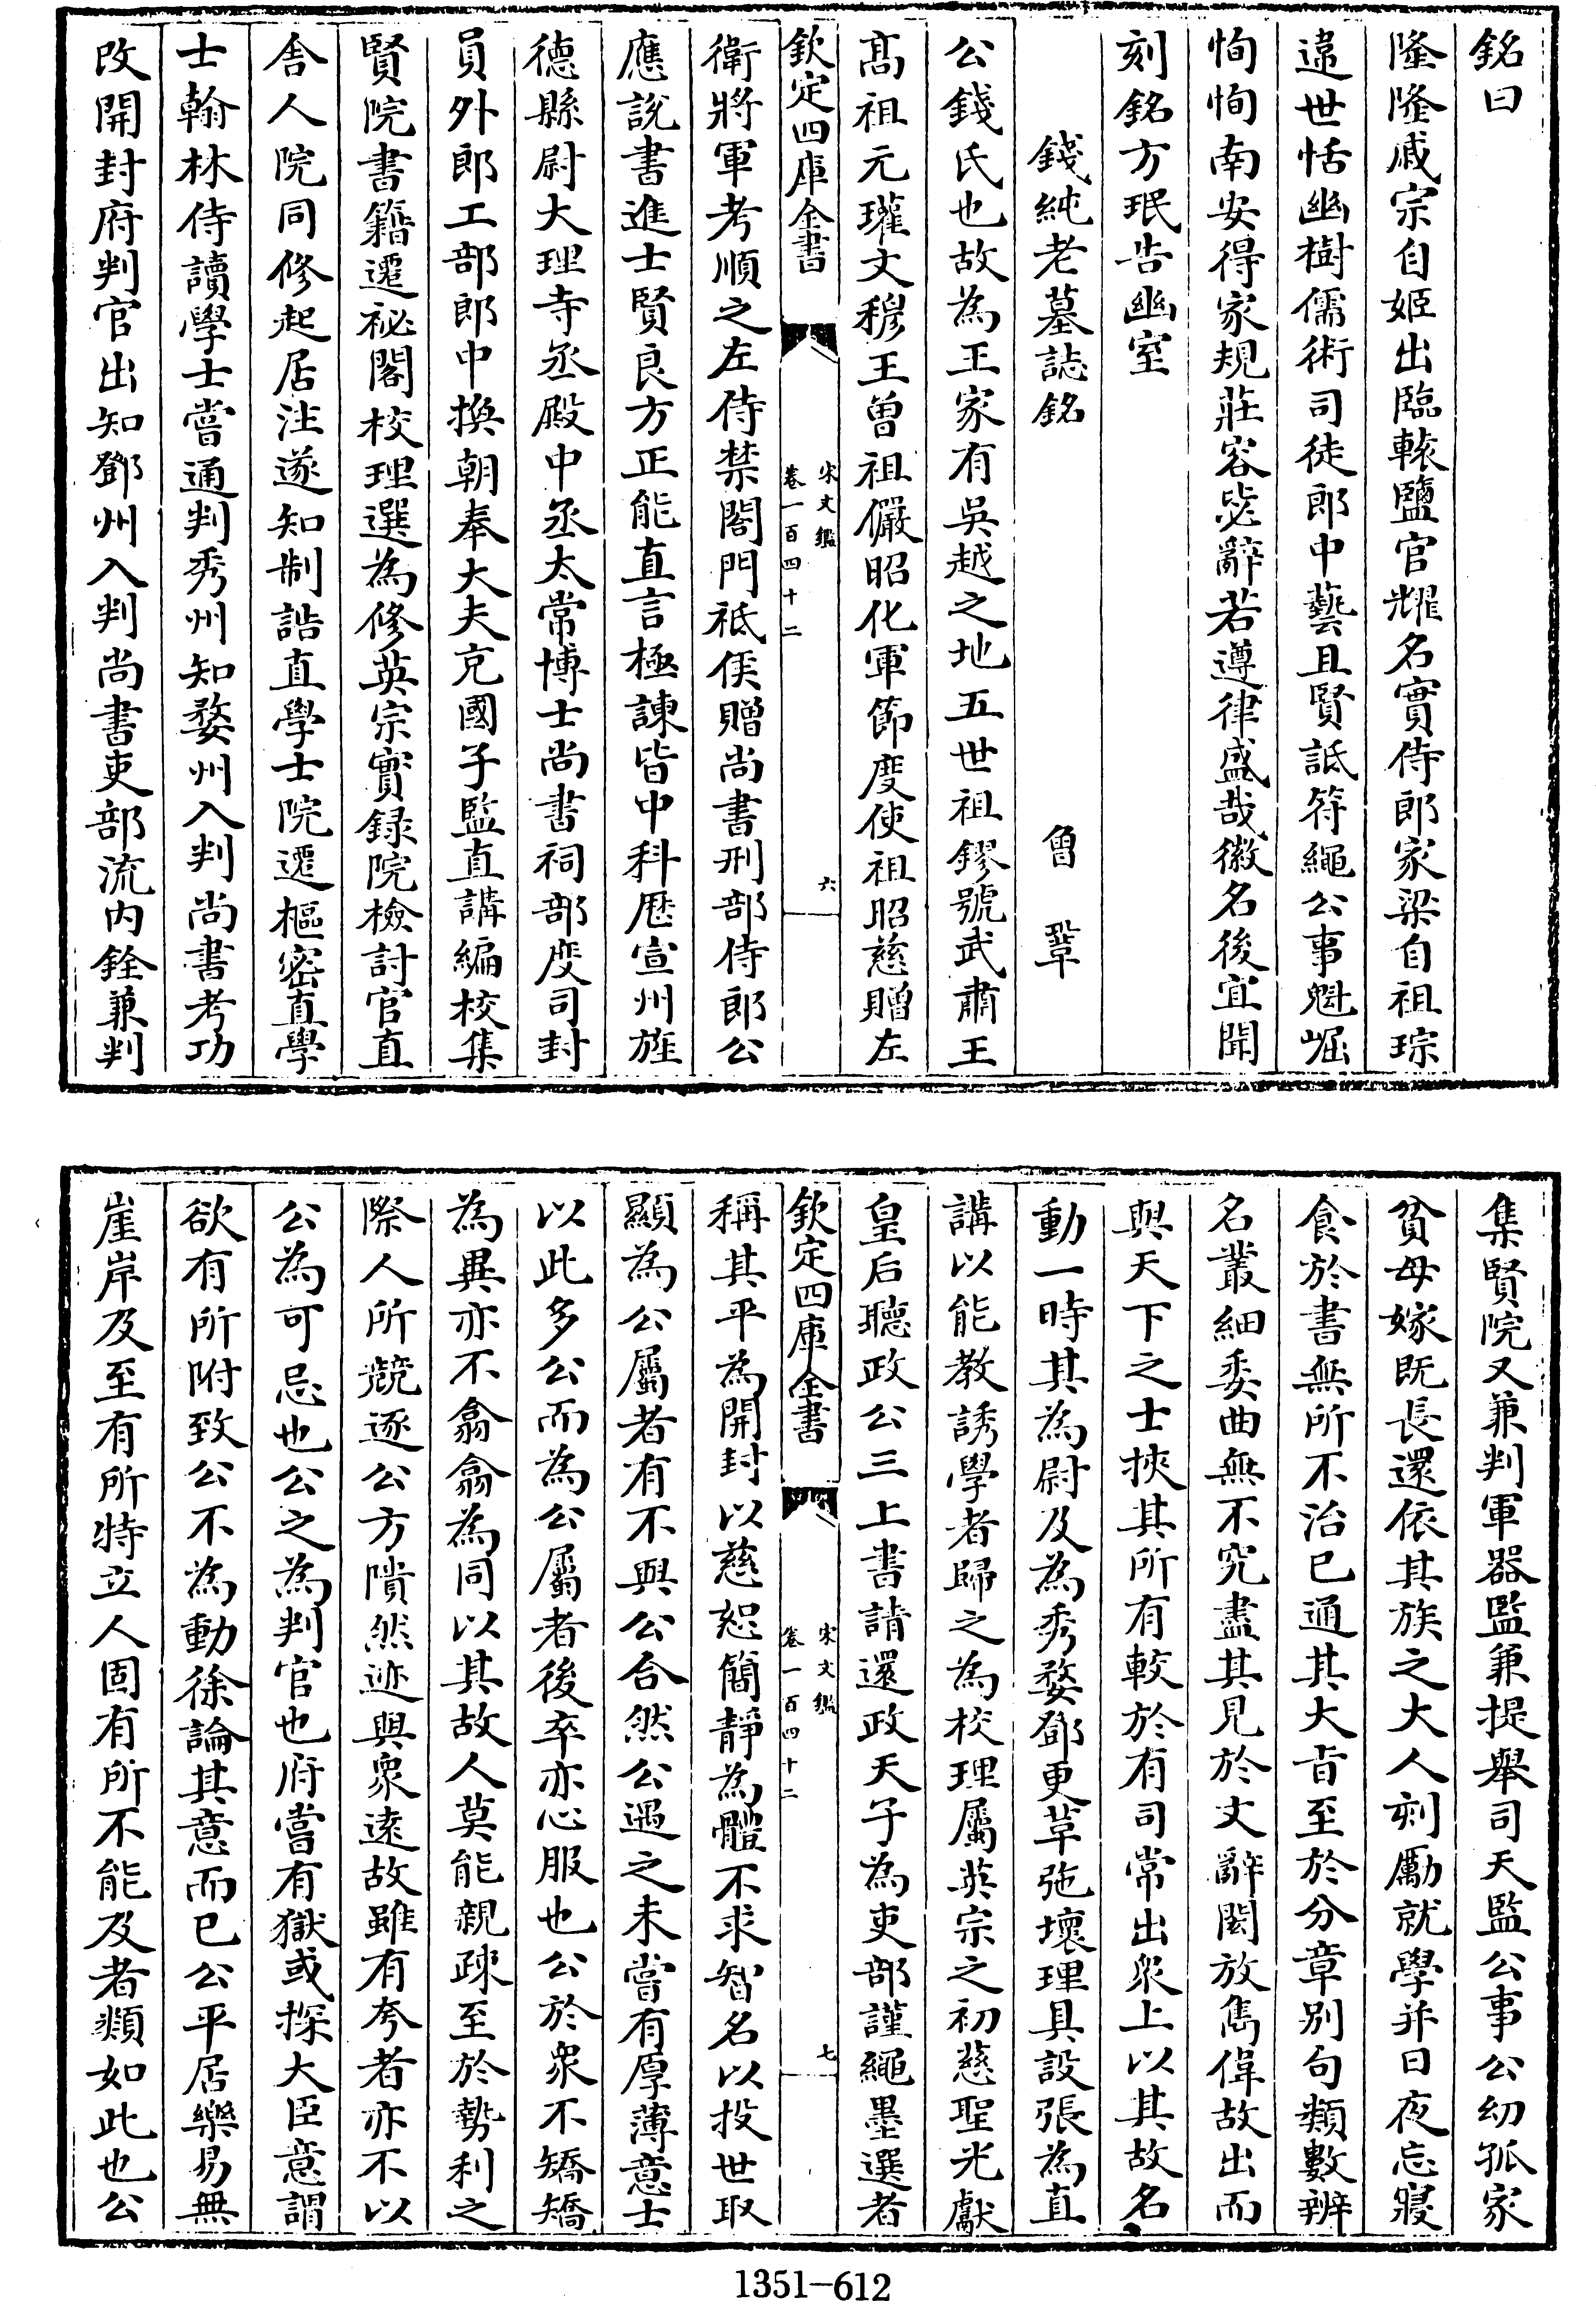 銘曰
隆隆戚宗自姬出臨轅鹽官耀名實侍郎家梁自祖琮
違世恬幽樹儒術司徒郎中藝且賢詆符繩公事魁崛
恂恂南安得家規莊容毖辭若遵律盛哉徽名後宜聞
刻銘方珉告幽室
錢純老墓誌銘　　曾鞏
公錢氏也故為王家有吳越之地五世祖鏐號武肅王
高祖元瓘文穆王曽祖儼昭化軍節度使祖昭慈贈左
欽定四庫全書　宋文鑑　卷一百四十二　六
衛將軍考順之左侍禁閤門祗候贈尚書刑部侍郎公
應說書進士賢良方正能直言極諫皆中科歷宣州旌
德縣尉大理寺丞殿中丞太常博士尚書祠部度司封
員外郎工部郎中換朝奉大夫充國子監直講編校集
賢院書籍遷祕閣校理選為修英宗實録院檢討官直
舍人院同修起居注遂知制誥直學士院遷樞密直學
士翰林侍讀學士嘗通判秀州知婺州入判尚書考功
改開封府判官出知鄧州入判尚書吏部流内銓兼判
集賢院又兼判軍器監兼提舉司天監公事公幼孤家
貧母嫁既長還依其族之大人刻勵就學并日夜忘寢
食於書無所不治已通其大旨至於分章別句類數辨
名叢細委曲無不究盡其見於文辭閎放雋偉故出而
與天下之士挾其所有較於有司常出衆上以其故名
動一時其為尉及為秀婺鄧更草弛壞理具設張為直
講以能教誘學者歸之為校理屬英宗之初慈聖光獻
皇后聽政公三上書請還政天子為吏部謹繩墨選者
欽定四庫全書　宋文鑑　卷一百四十二　七
稱其平為開封以慈恕簡靜為體不求智名以投世取
顯為公屬者有不與公合然公遇之未嘗有厚薄意士
以此多公而為公屬者後卒亦心服也公於衆不矯矯
為異亦不翕翕為同以其故人莫能親疎至於勢利之
際人所競逐公方隤然迹與衆遠故雖有夸者亦不以
公為可忌也公之為判官也府嘗有獄或探大臣意謂
欲有所附致公不為動徐論其意而已公平居樂易無
崖岸及至有所特立人固有所不能及者類如此也公
1351-612